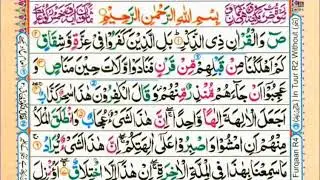 بِسْمِ اللّٰهِ الرَّحْمٰنِ الرَّحِيْمِ
صٓ وَالْقُرْاٰنِ ذِی الذِّكْرِ بَلِ الَّذِيْنَ كَفَرُوْا فِیْ عِزَّةٍ وَّشِقَاقٍ ۲
كَمْ اَهْلَكْنَا مِنْ قَبْلِهِمْ مِّنْ قَرْنٍ فَنَادَوْا وَّلَاتَ حِيْنَ مَنَاصٍ ۳ وَ
عَجِبُوْۤا اَنْ جَآءَهُمْ مُّنْذِرٌ مِّنْهُمْ وَقَالَ الْكٰفِرُوْنَ هٰذَا سٰحِرٌ كَذَّابٌ
اَجَعَلَ الْاٰلِهَةَ اِلٰهًا وَّاحِدًا اِنَّ هٰذَا لَشَیْءٌ عُجَابٌ وَانْطَلَقَ الْمَلَاُ
مِنْهُمْ اَنِ امْشُوْا وَاصْبِرُوْا عَلٰۤی اٰلِهَتِكُمْ اِنَّ هٰذَا لَشَیْءٌ يُّرَادُ
مَا سَمِعْنَا بِهٰذَا فِی الْمِلَّةِ الْاٰخِرَةِ اِنْ هٰذَاۤ اِلَّا اخْتِلَاقٌ
in Tuur R2 Without
Furqaan R4